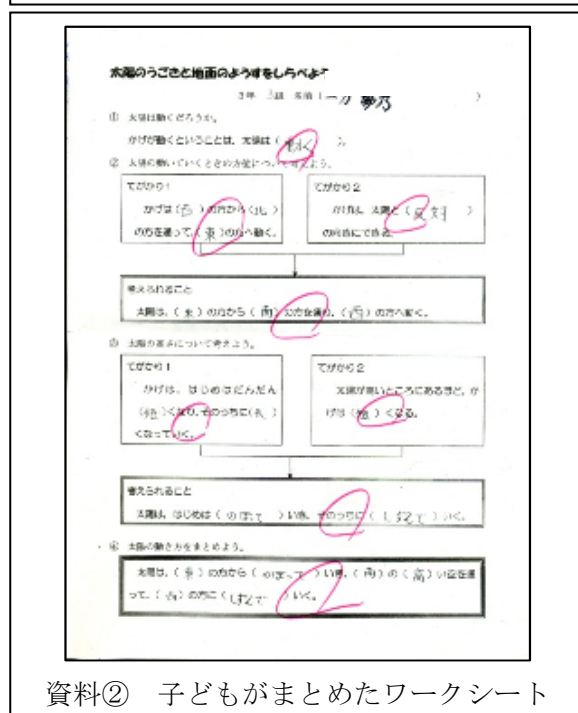 太陽のうごきと地面のようすをしらべよう
3年 3組 名前( 夢乃 )
① 太陽は動くだろうか。
かげが動くということは、太陽は( 動く )。
② 太陽の動いていくときの方位について考えよう。
てがかり1
かげは(西)の方から(北)
の方を通って、(東)の方へ動く。
てがかり2
かげは、太陽と(反対)
の方向にできる。
考えられること
太陽は、(東)の方から(南)の方を通り、(西)の方へ動く。
③ 太陽の高さについて考えよう。
てがかり1
かげは、はじめはだんだん
(短)くなり、そのうちに(長)
くなっていく。
てがかり2
太陽が高いところにあるほど、か
げは(短)くなる。
考えられること
太陽は、はじめは( のぼって )いき、そのうちに( しずんで )いく。
④ 太陽の動き方をまとめよう。
太陽は、(東)の方から( のぼって )いき、(南)の(高)い空を通
って、(西)の方に( しずんで )いく。
資料② 子どもがまとめたワークシート